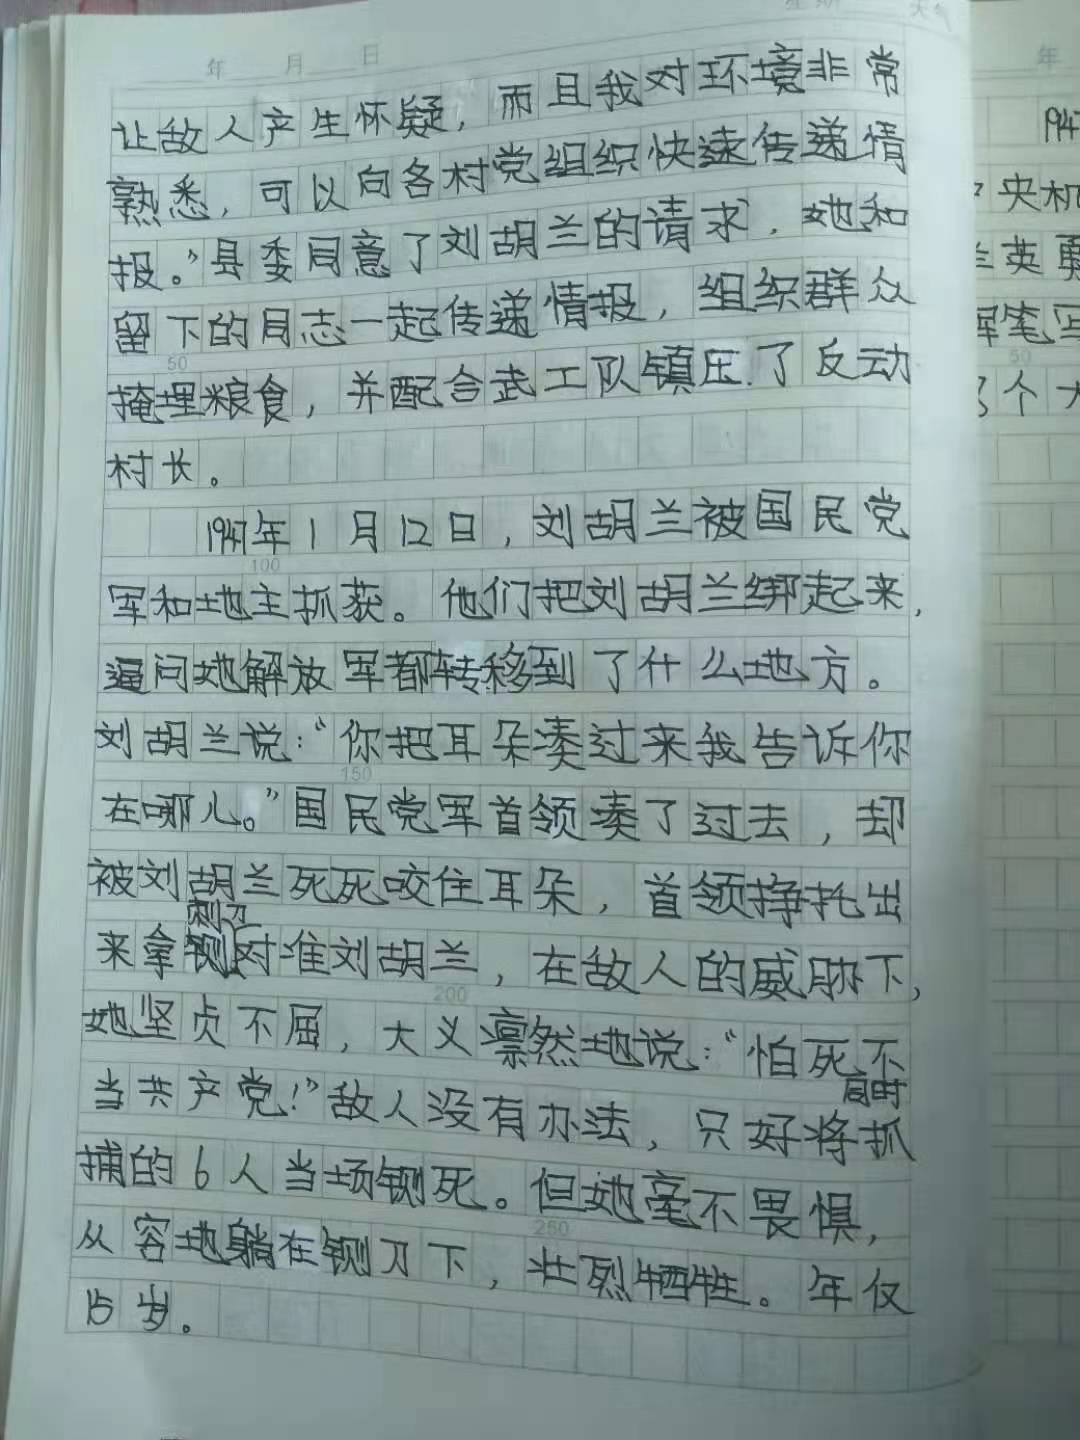 星期 天气
年 月 日
让敌人产生怀疑，而且我对环境非常
熟悉，可以向各村党组织快速传递情
报。”县委同意了刘胡兰的请求，她和
留下的同志一起传递情报，组织群众
50
掩埋粮食，并配合武工队镇压了反动
村长。
1947年1月12日，刘胡兰被国民党
100
军和地主抓获。他们把刘胡兰绑起来，
逼问她解放军都转移到了什么地方。
刘胡兰说：“你把耳朵凑过来我告诉你
150
在哪儿。”国民党军首领凑了过去，却
被刘胡兰死死咬住耳朵，首领挣扥出
刺刀
来拿铡对准刘胡兰，在敌人的威胁下，
200
她坚贞不屈，大义凛然地说：“怕死不
同时
当共产党！”敌人没有办法，只好将抓
捕的6人当场铡死。但她毫不畏惧，
250
从容地躺在铡刀下，壮烈牺牲。年仅
15岁。
年
1947
央机
兰英勇
挥笔写
50
个大